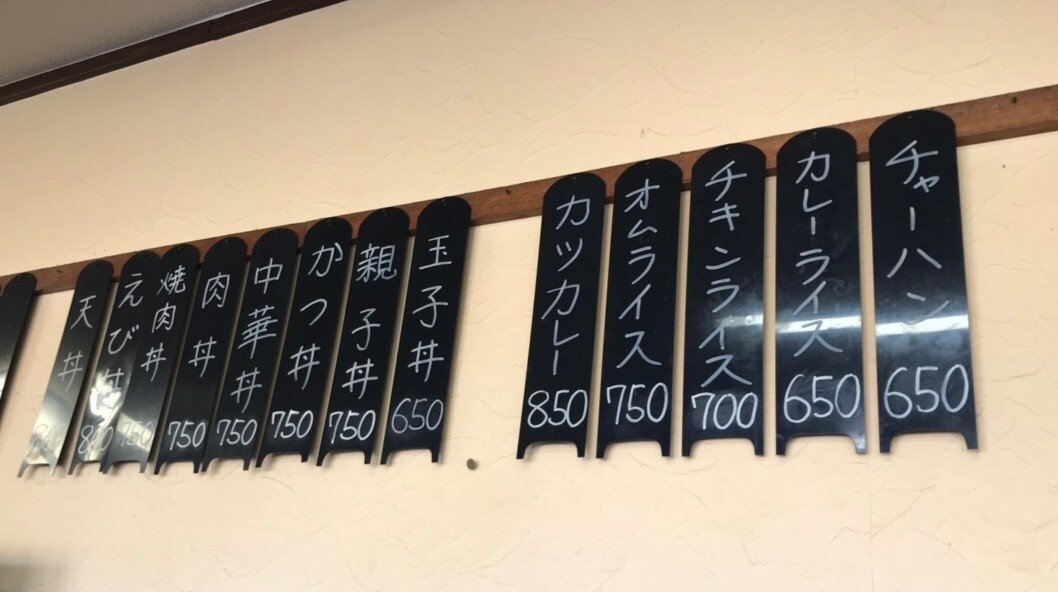 チャーハン 650
カレーライス 650
チキンライス 700
オムライス 750
カツカレー 850
玉子丼 650
親子丼 750
かつ丼 750
中華丼 750
肉丼 750
焼肉丼 750
えび丼 850
天丼